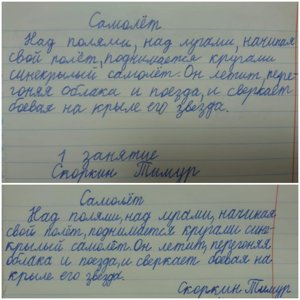 Самолёт
Над полями, над лугами, начиная
свой полёт, поднимается кругами
синекрылый самолёт. Он летит, пере-
гоняя облака и поезда, и сверкает
боевая на крыле его звезда.
1 занятие
Скоркин Тимур
Самолёт
Над полями, над лугами, начиная
свой полёт, поднимается кругами сине-
крылый самолёт. Он летит, перегоняя
облака и поезда, и сверкает боевая на
крыле его звезда.
Скоркин Тимур